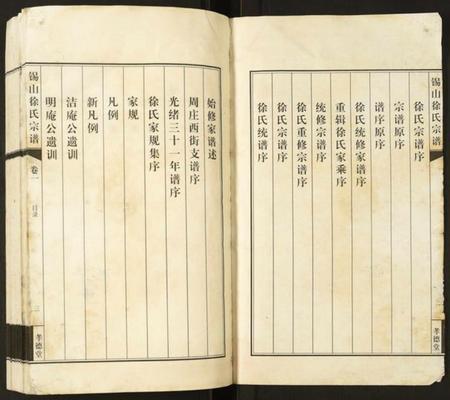 锡山徐氏宗谱
孝德堂
徐氏宗谱序
宗谱原序
谱序原序
徐氏统修家谱序
重辑徐氏家乘序
统修宗谱序
徐氏重修宗谱序
徐氏宗谱序
徐氏统谱序
始修家谱述
周庄西街支谱序
光绪三十一年谱序
徐氏家规集序
家规
凡例
新凡例
洁庵公遗训
明庵公遗训
锡山徐氏宗谱
卷一
目录
三
孝德堂